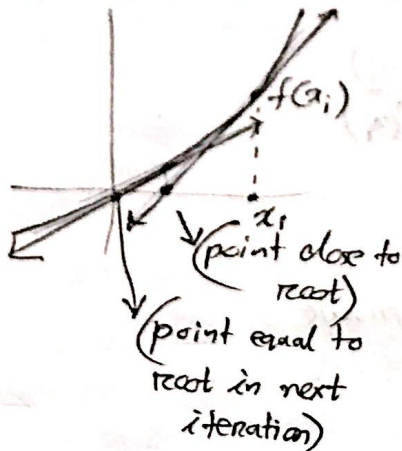 f(x_i)
x_i
(point close to
root)
(point equal to
root in next
iteration)